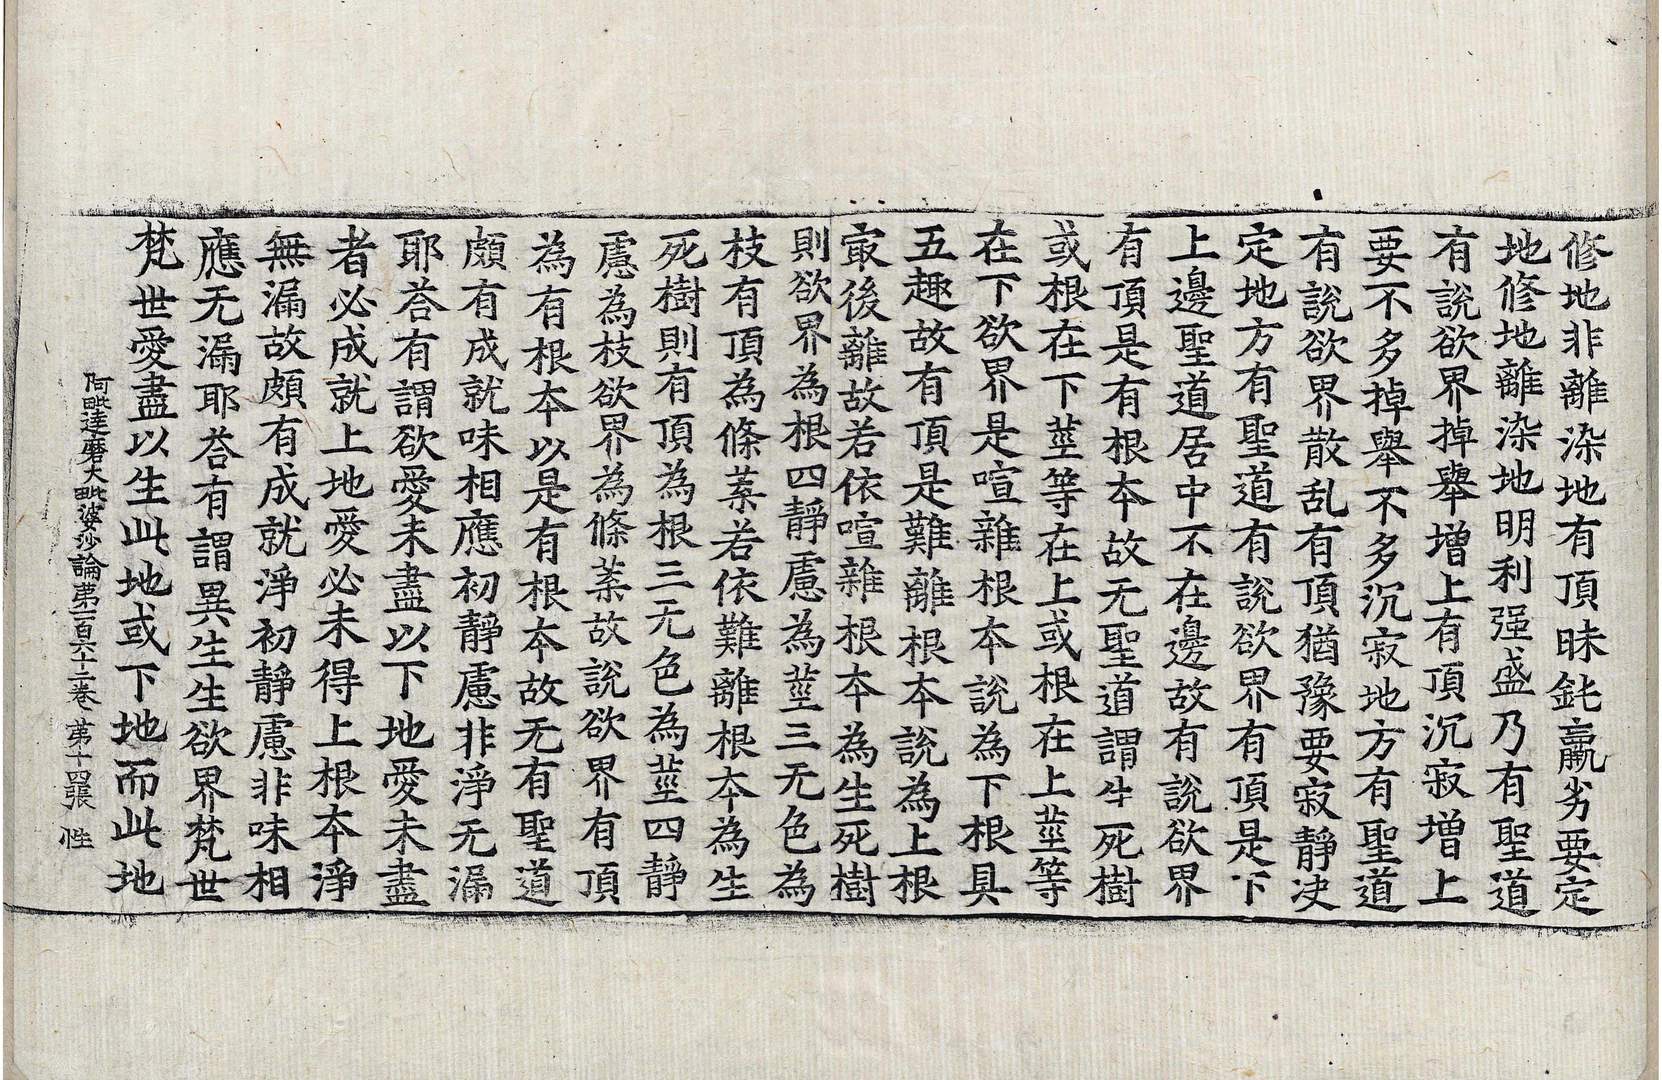 修地非離染地有頂昧鈍羸劣要定
地修地離染地明利强盛乃有聖道
有說欲界掉舉增上有頂沉寂增上
要不多掉舉不多沉寂地方有聖道
有說欲界散乱有頂猶豫要寂靜决
定地方有聖道有說欲界有頂是下
上邊聖道居中不在邊故有說欲界
有頂是有根本故无聖道謂生死樹
或根在下莖等在上或根在上莖等
在下欲界是喧雜根本說為下根具
五趣故有頂是難離根本說為上根
㝡後離故若依喧雜根本為生死樹
則欲界為根四靜慮為莖三无色為
枝有頂為條葉若依難離根本為生
死樹則有頂為根三无色為莖四靜
慮為枝欲界為條葉故說欲界有頂
為有根本以是有根本故无有聖道
頗有成就味相應初靜慮非淨无漏
耶荅有謂欲愛未盡以下地愛未盡
者必成就上地愛必未得上根本淨
無漏故頗有成就淨初靜慮非味相
應无漏耶荅有謂異生生欲界梵世
梵世愛盡以生此地或下地而此地
阿毗達磨大毗婆沙論第一百六十二卷 第十四張 性